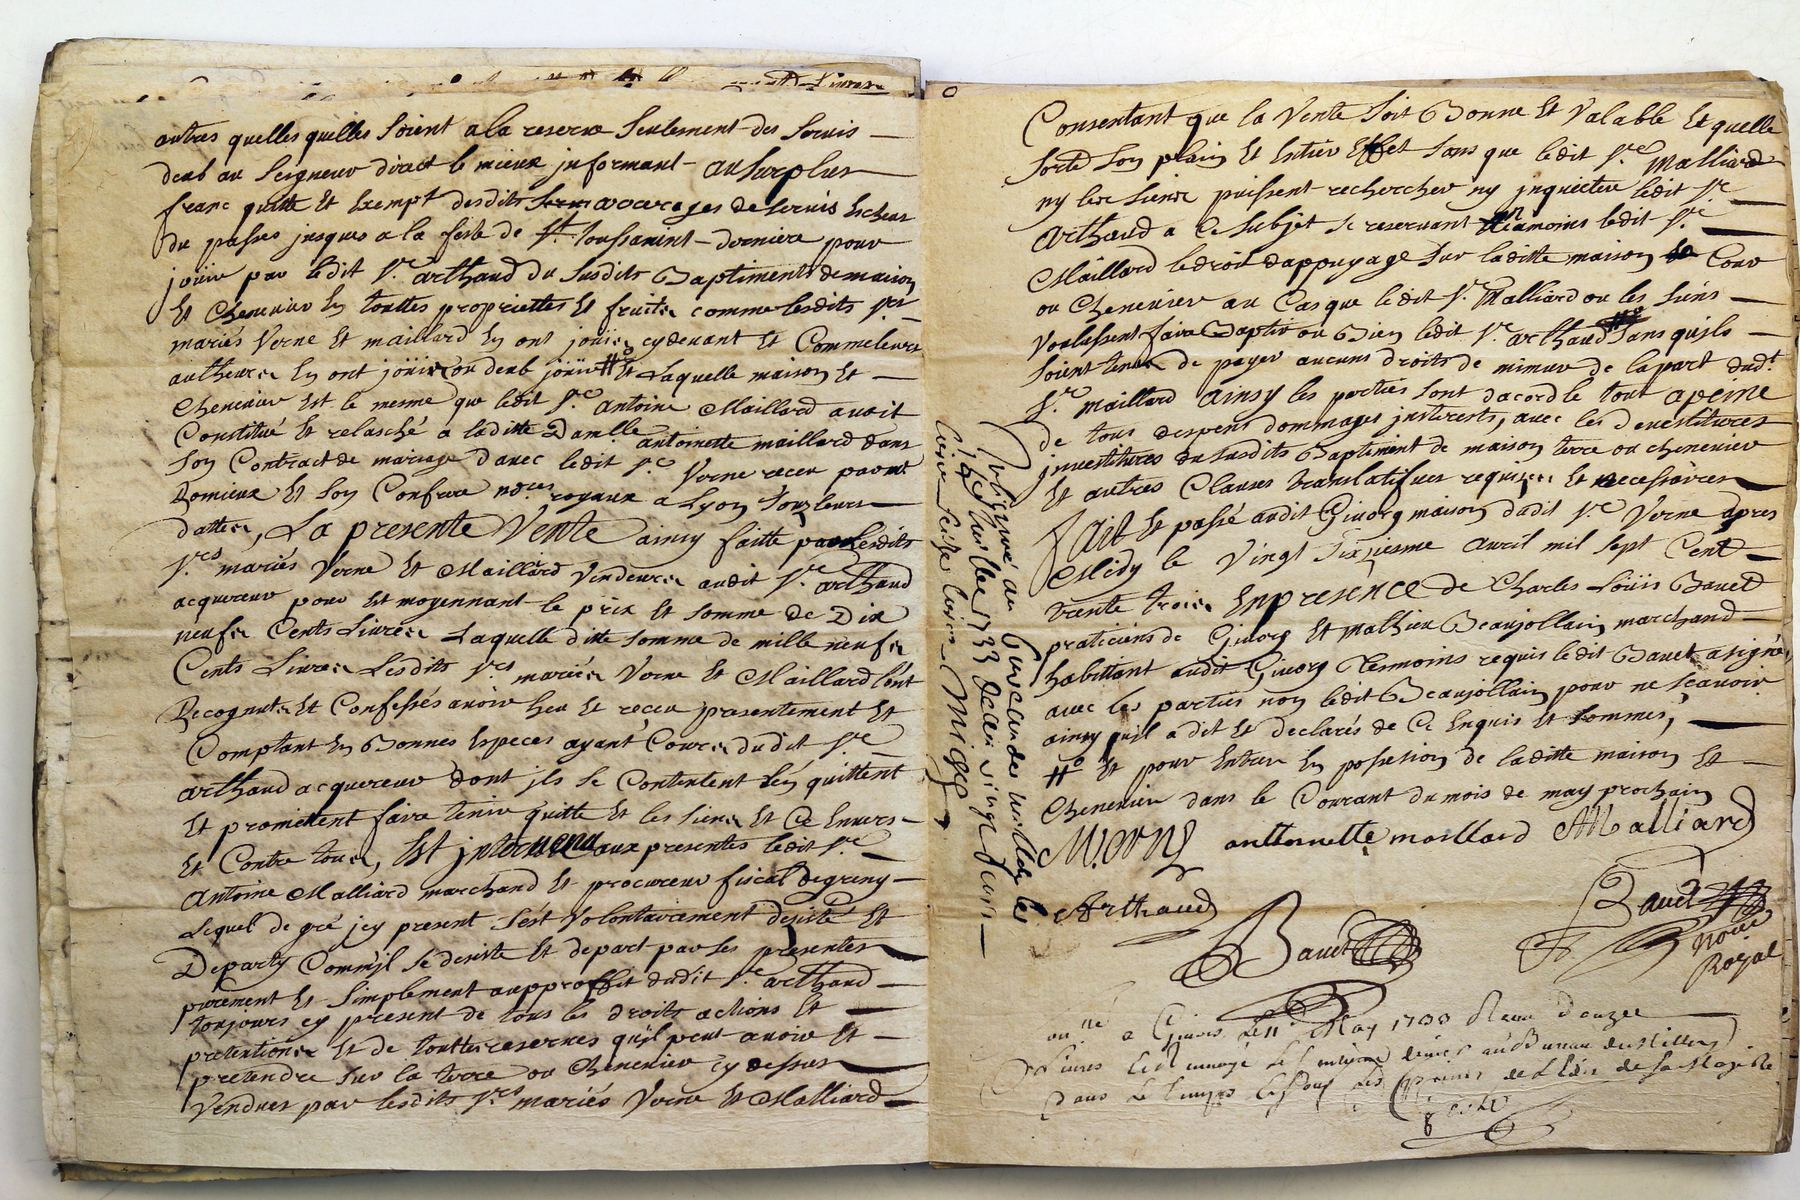 Livres
autres quelles quelles soient a la reserve seulement des servis
deub au seigneur direct le mieux informant au surplus
franc quitte Et Exempt desdits arrerages de servis Escheus
du passes jusques a la feste de St toussainct derniere pour
joüir par ledit Sr. arthaud du susdits Baptiments de maison
Et Chenevier En touttes propriettes Et fruits comme lesdits Srs
mariés Verne Et maillard En ont joüis cydevant Et Comme leurs
autheurs En ont joüis ou deub joüir # Et Laquelle maison Et
Chenevier Est le mesme que ledit Sre. Antoine Maillard avoit
Constitué Et relasché a laditte Damlle antoinette maillard dans
son Contract de mariage d'avec ledit Sr. Verne receu par mt
Romieux Et son Confrere nores royaux a Lyon sous leurs
dattes, La presente Vente ainsy faitte par lesdits
Srs mariés Verne Et Maillard Vendeurs audit Sre. arthaud
acquereur pour Et moyennant le prix Et somme de Dix
neufs Cents Livres Laquelle ditte somme de mille neufs
Cents Livres Lesdits Srs mariés Verne Et Maillard l'ont
Recognuts Et Confessés avoir heu Et receu presentement Et
Comptant En Bonnes Especes ayant Cours dudit Sre
arthaud acquereur dont ils se Contentent L'en quittent
Et promettent faire tenir quitte Et les siens Et Ce Envers
Et Contre tous, Est intervenu aux presentes ledit Sre
Antoine Malliard marchand Et procureur fiscal de grigny
Lequel de gré icy present s'est volontairement desisté Et
Departy Comm'il se desiste Et depart par ses presentes
purement Et simplement au proffit dudit Sre. arthaud
toujours cy present de tous les droits actions Et
pretentions Et de touttes reserves qu'il peut avoir Et
pretendre sur la terre ou Chenevier cy dessus
Vendues par lesdits Srs mariés Verne Et Malliard
Consentant que la Vente soit Bonne Et Valable Et quelle
sorte son plain Et Entier Effet sans que ledit Sre Malliard
ny les siens puissent rechercher ny inquietter ledit Sr.
Arthaud a Ce subjet se reservant neanmoins ledit Sre
Maillard le droit d'appuyage sur laditte maison Cour
ou Chenevier au Cas que ledit Sr. Malliard ou les siens
Voulussent faire Baptir ou Bien ledit Sr. arthaud sans qu'ils
soient tenus de payer aucuns droits de mimur de la part dudt
Sre. Maillard Ainsy les parties sont d'accord le tout a peine
de tous despens dommages interests, avec les devestitures
investitures du susdits Baptiment de maison terre ou chenevier
Et autres Clauses translatifves requises Et necessaires
fait Et passé audit Givorg maison dudit Sre. Verne apres
Midy le Vingt sixiesme Avril mil sept Cent
trente trois En presence de Charles Loüis Bavet
praticiens de Givorg Et Mathieu Beaujollain marchand
habittant audit Givorg Tesmoins requis ledit Bavet a signé
avec les parties non ledit Beaujollain pour ne sçavoir
ainsy qu'il a dit Et declarés de Ce Enquis Et sommés,
# Et pour Entrer En possesion de laditte maison Et
Chenevier dans le Courant du mois de may prochain
M. Verne antoinette maillard AMalliard
Arthaud Bavet Bavet
Nore
Royal
a Givors Le 11e May 1733 Receu
Livres au Bureau
dans Le temps
de Sa Majesté
Insinué au
1733